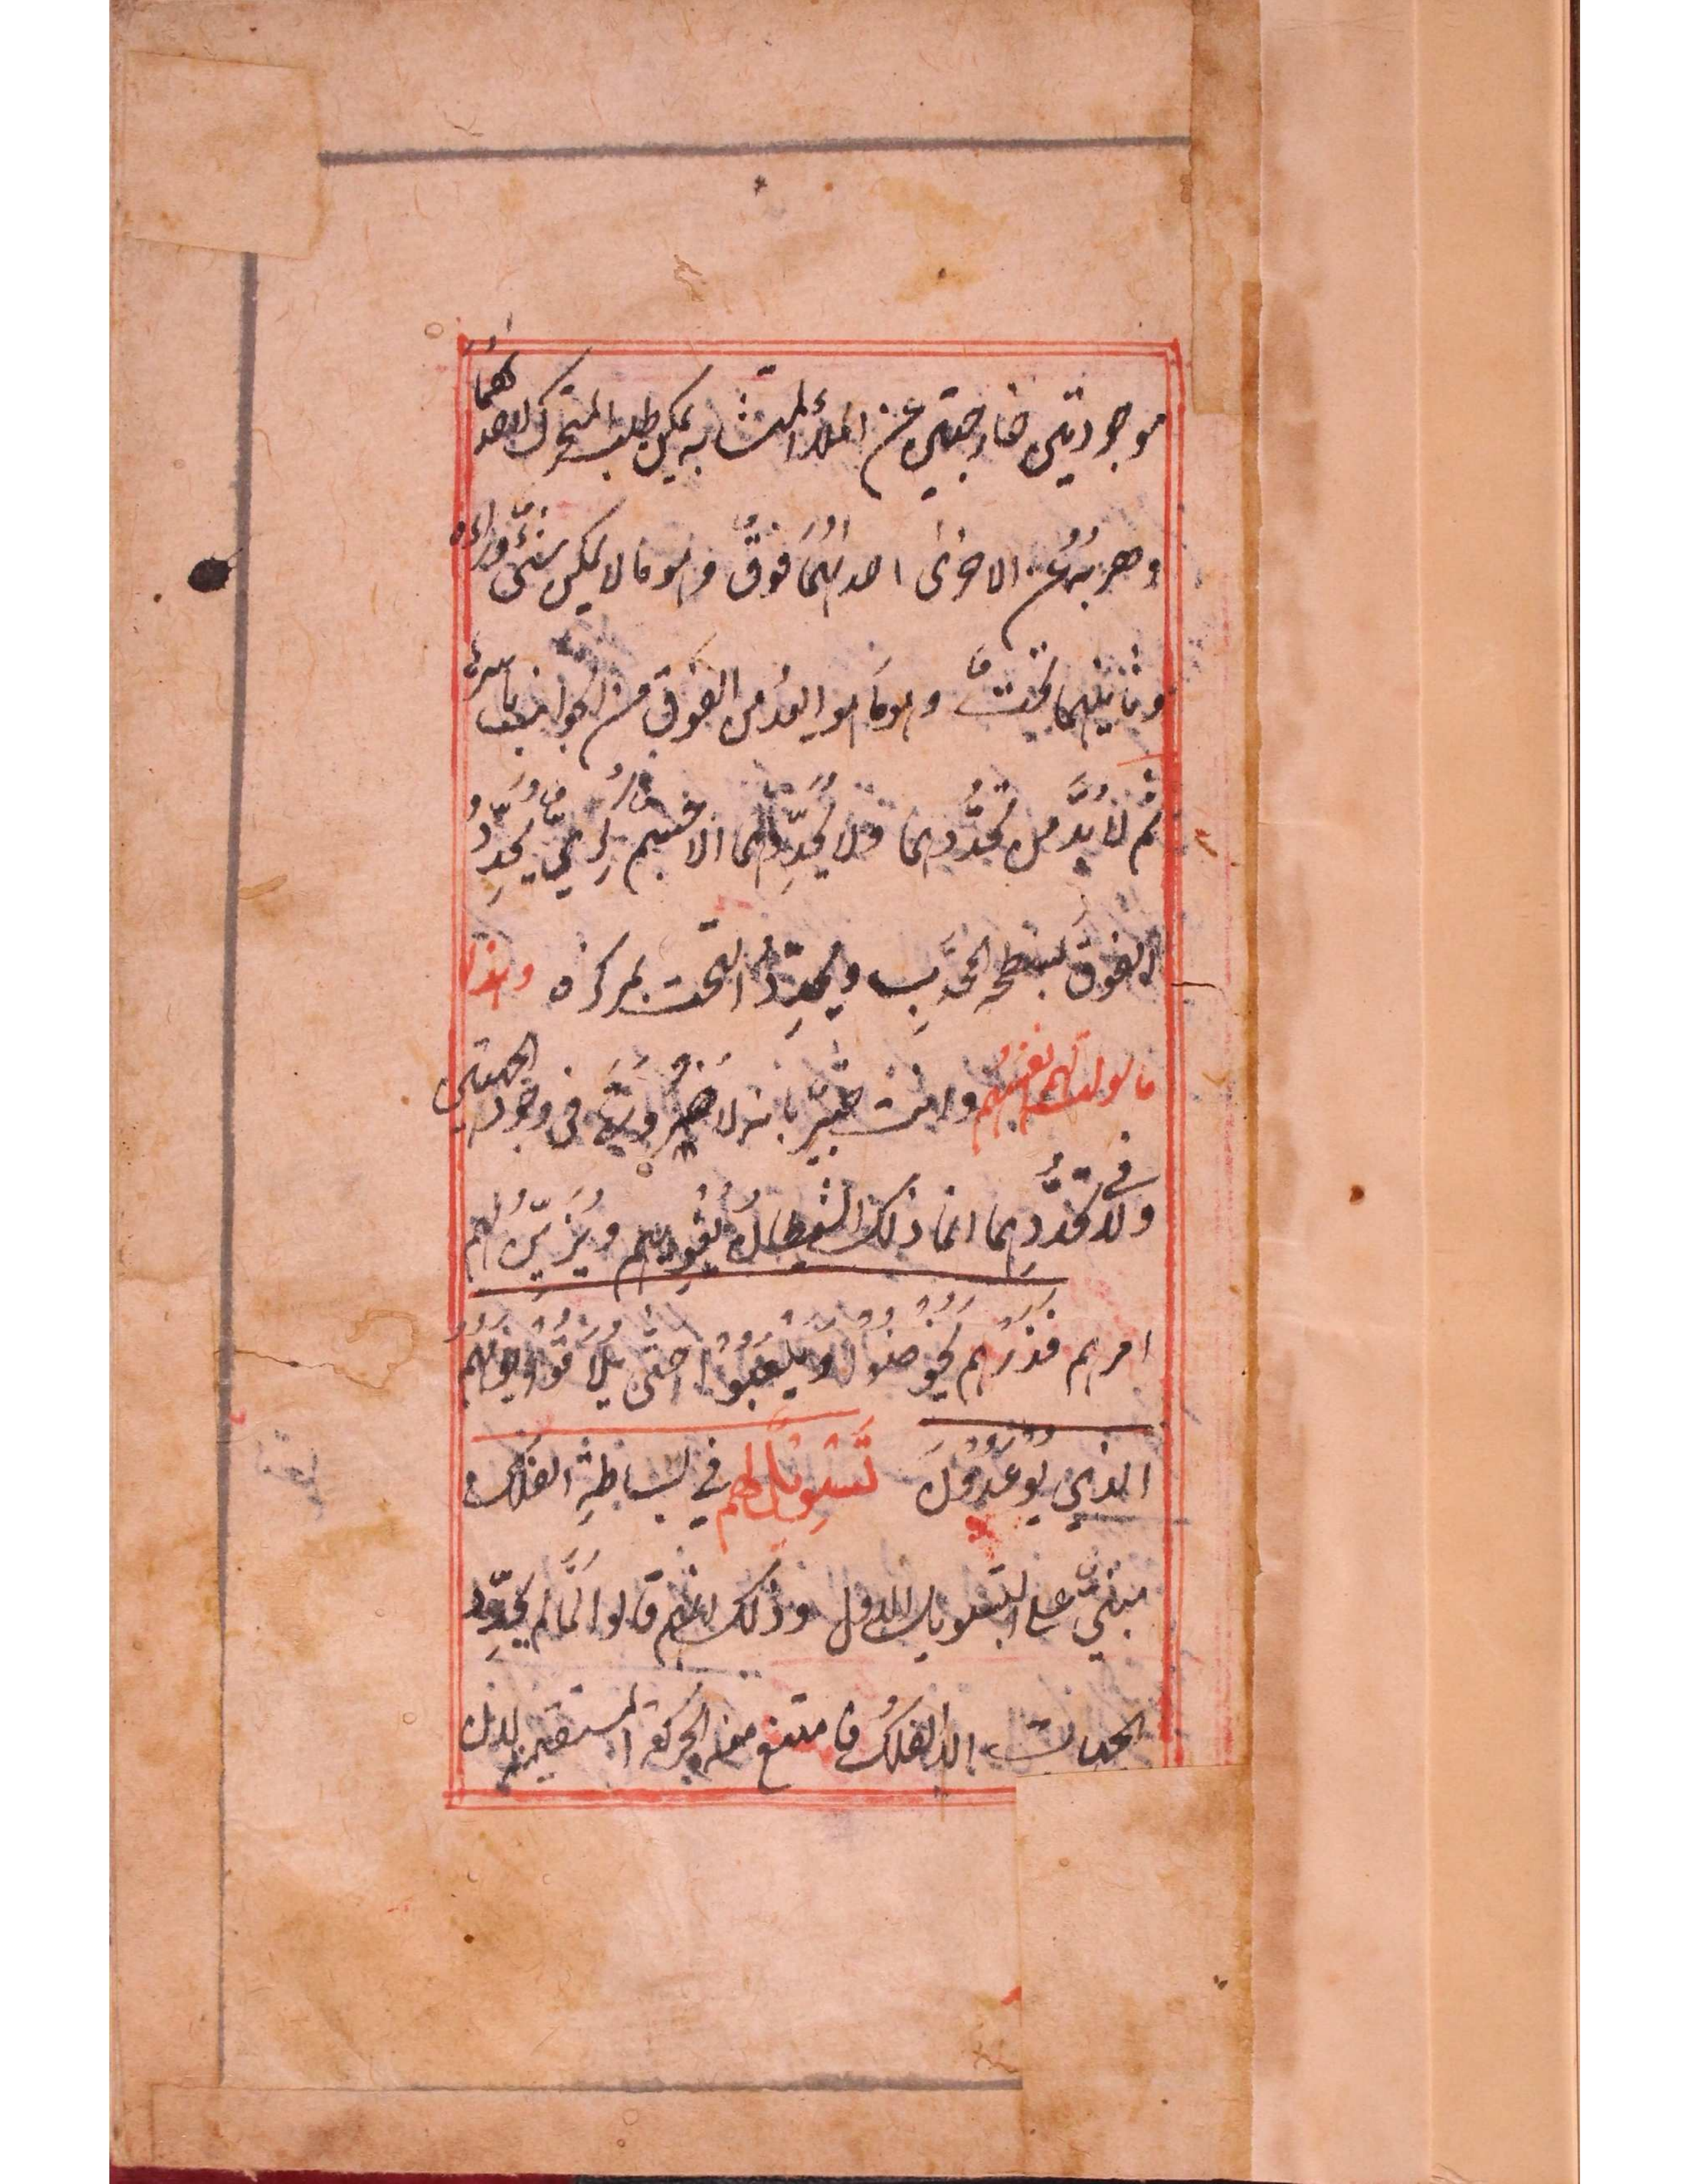 موجودتين خارجتين عن الملأ المتشابه يمكن طلب المتحرك لاحدٰهما
وهربُه عن الاخرٰى احدٰهُمَا فَوقٌ وهو ما لا يمكن شئٌ وراءه
وثانيتهما تحتٌ وهو ما هو ابعدُ من الفوق من الجوانب باسرها
ثم لا بُدَّ من تحدُّدهما ولا يُحدِّدُهما الا جسم كُرِيٌّ يُحدِّدُ
الفوق بسطحه المحدَّب ويُحدِّدُ التحت بمركزه وهذا
ما سولت لهم انفسُهم وانت خبيرٌ بانه لا ضَرُورَةَ في وجود الجهتين
ولا في تحدُّدِهما انما ذلك الشيطانُ يُغوِيهم ويُزَيِّنُ لهم
امرهم فَذَرْهُم يَخُوضُوْا وَيَلْعَبُوْا حَتّٰى يُلَاقُوْا يومَهُم
الذي يُوْعَدُوْنَ تَسْوِيْلٌ لهم في بساطةِ الفلك
مبنيٌّ على التسويل الاول وذلك انهم قالوا لَمَّا لم يُحدِّد
الجهات الا الفلكُ فامتنع منه الحركة المستقيمة لان